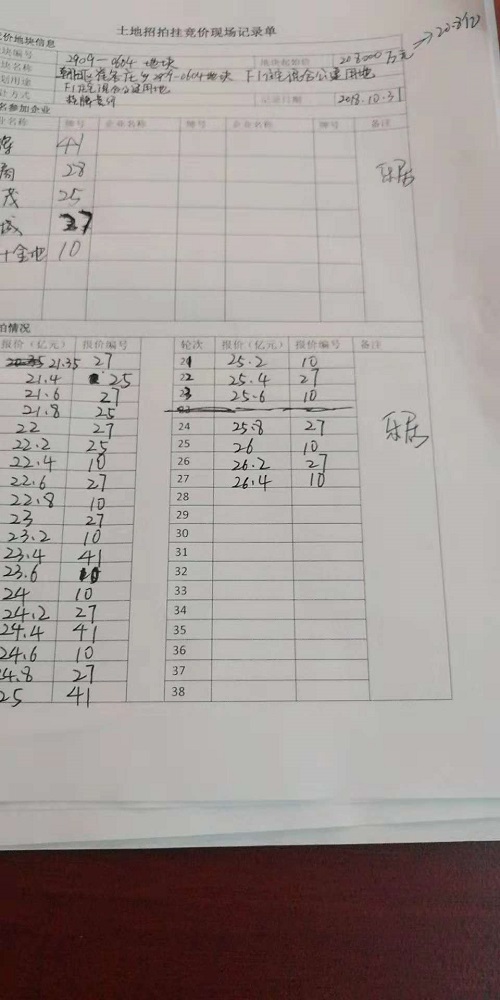 土地招拍挂竞价现场记录单
价地块信息
块编号 2909-0604 地块 地块起始价 208000 万元 → 20.8亿
块名称 朝阳区崔各庄乡2909-0604地块 F1住宅混合公建用地
划用途 F1住宅混合公建用地
让方式 挂牌 记录日期 2018.10.31
名参加企业
业名称 牌号 企业名称 牌号 企业名称 牌号 备注
41
28 乐居
茂 25
城 27
十金地 10
拍情况
报价(亿元) 报价编号 轮次 报价(亿元) 报价编号 备注
21.35 27 21 25.2 10
21.4 25 22 25.4 27
21.6 27 23 25.6 10
21.8 25
22 27 24 25.8 27 乐居
22.2 25 25 26 10
22.4 10 26 26.2 27
22.6 27 27 26.4 10
22.8 10 28
23 27 29
23.2 10 30
23.4 41 31
23.6 10 32
24 10 33
24.2 27 34
24.4 41 35
24.6 10 36
4.8 27 37
25 41 38